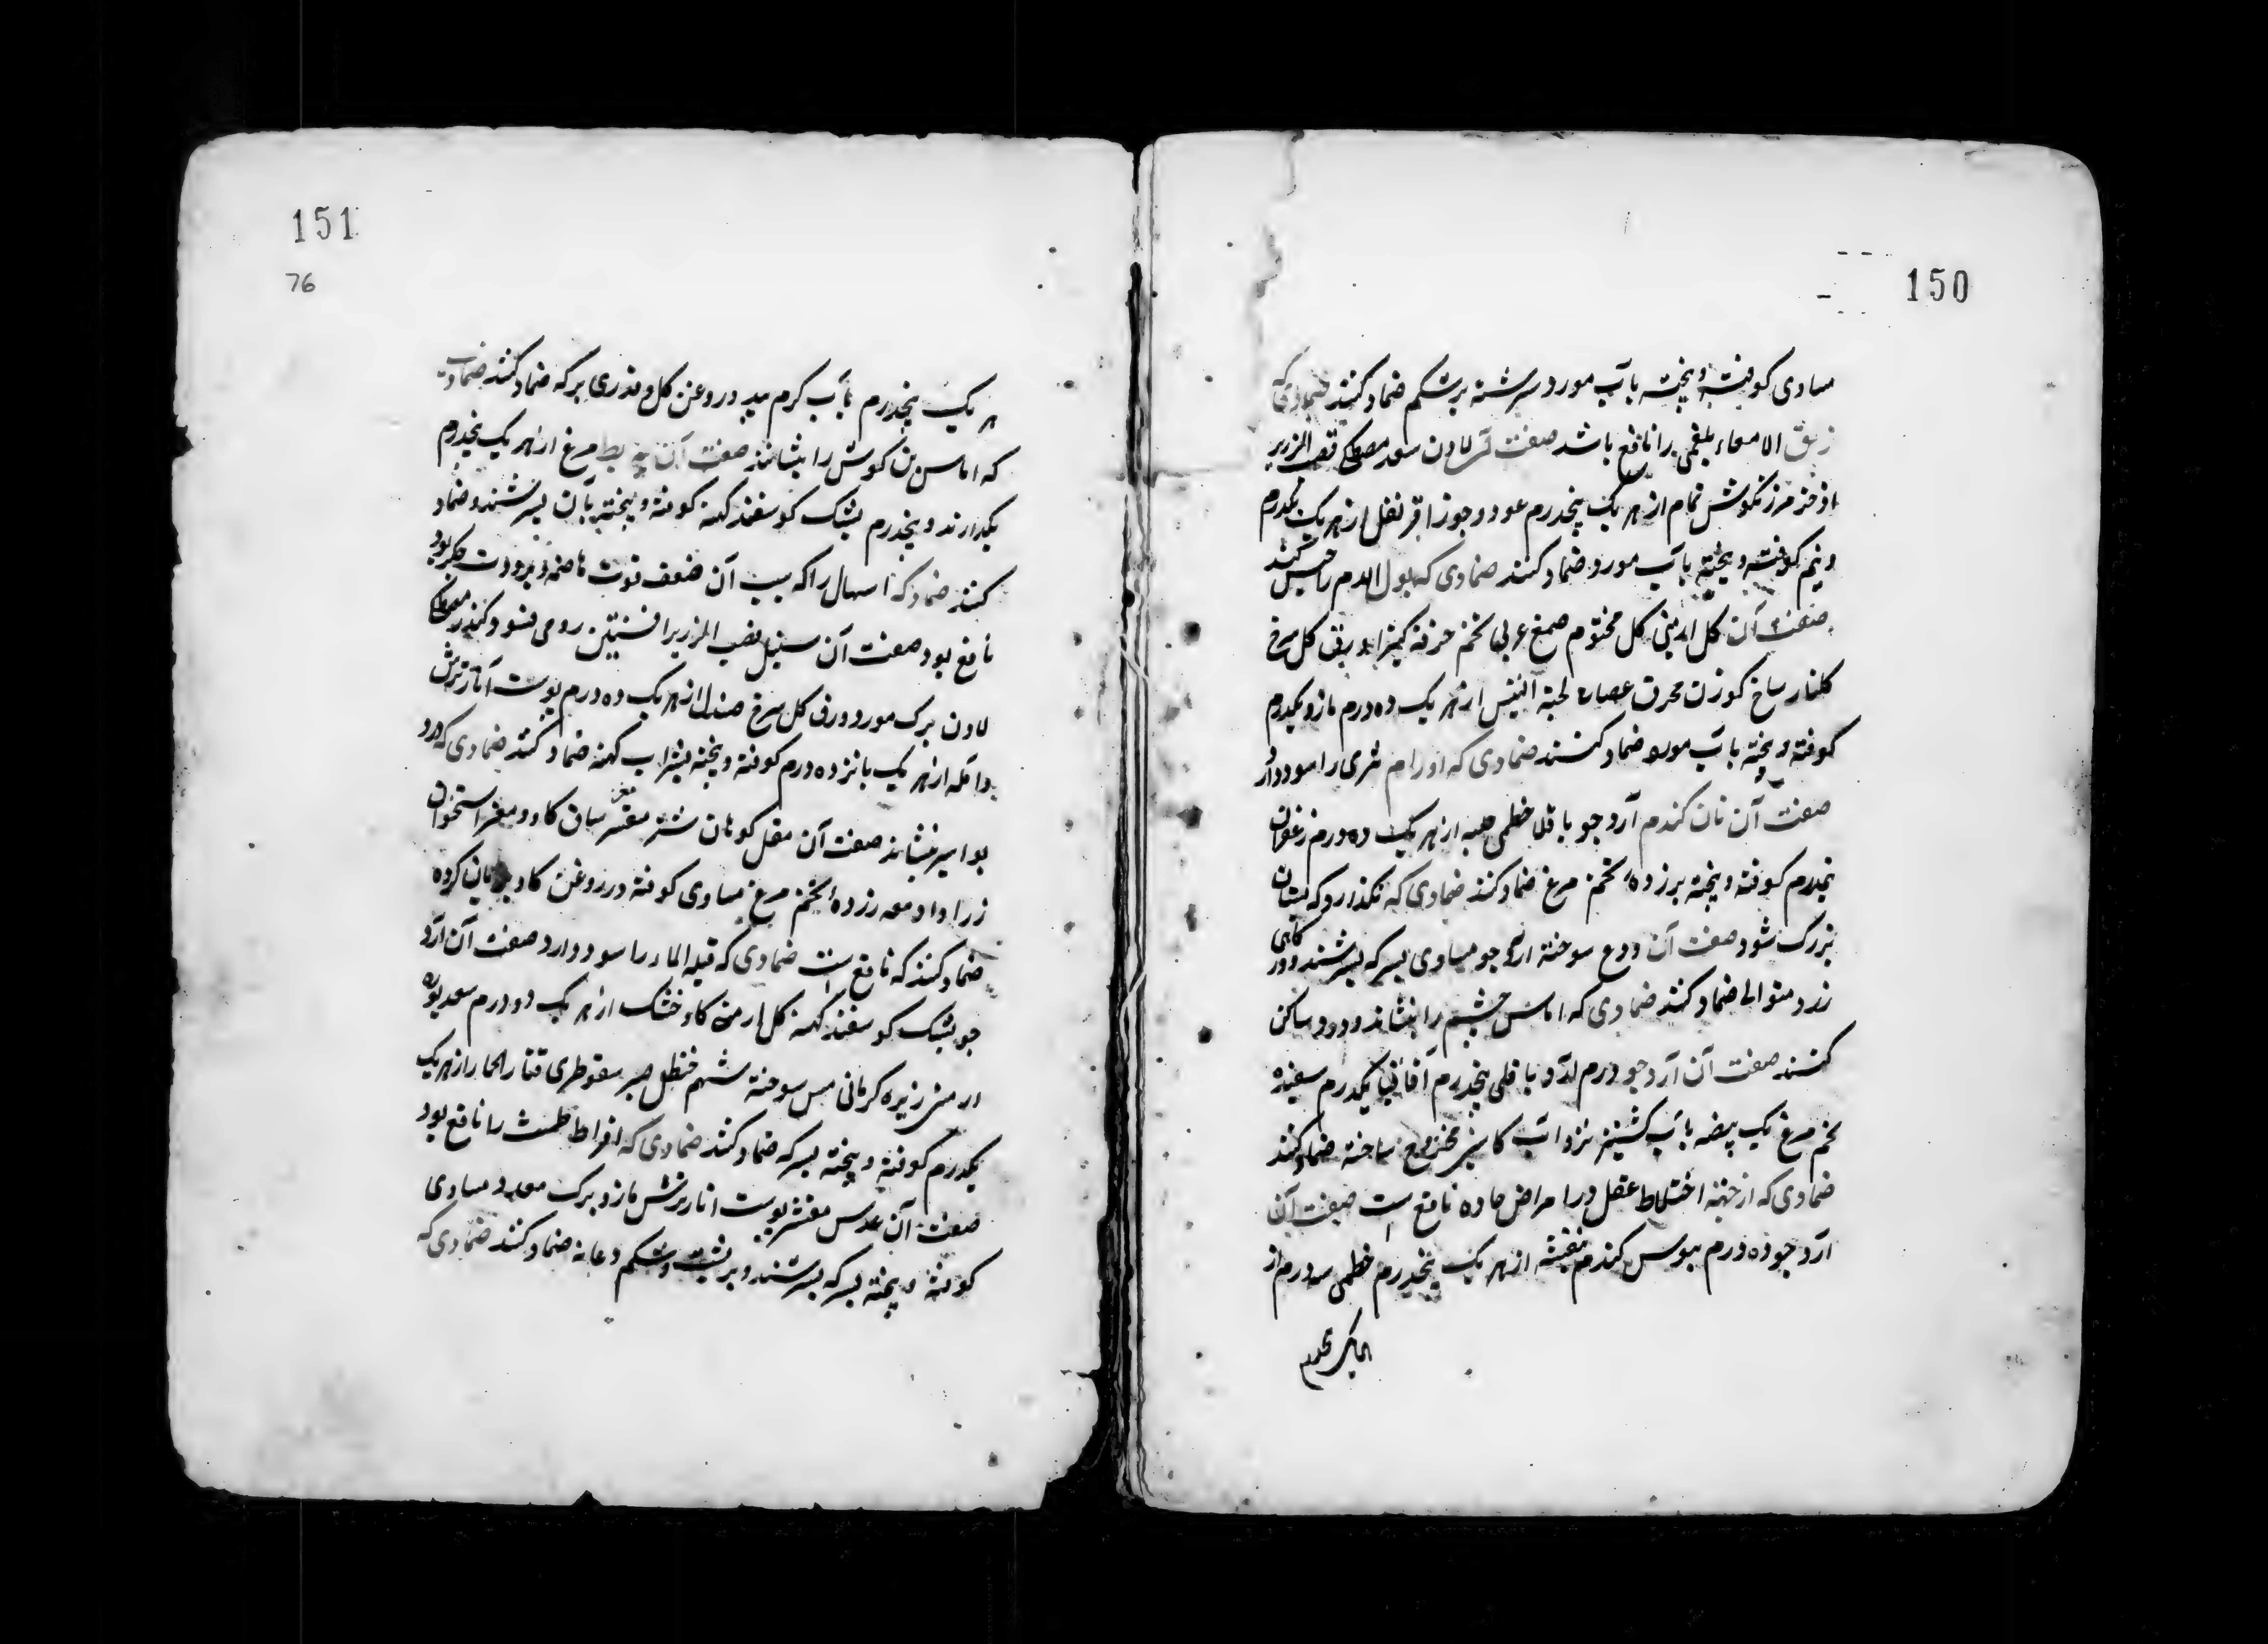 150
مساوی کوفته و بیخته بآب مورد سرشته بر شکم ضماد کنند ضمادی که
زلق الامعاء بلغمی را نافع باشد صفت آن لادن سعد مصطکی قصب الزریر
اذخر مرزنکوش نمام از هر یک پنجدرم عود و جوزا قرنفل از هر یک یکدرم
و نیم کوفته و بیخته بآب مورد ضماد کنند ضمادی که بول الدم را حبس کند
صفت آن کل ارمنی کل مختوم صمغ عربی تخم خرفه کتیرا ورق کل سرخ
کلنار شاخ کوزن محرق عصاره لحیة التیس از هر یک ده درم مازو یکدرم
کوفته و بیخته بآب مورد ضماد کنند ضمادی که اورام ثدی را سود دارد
صفت آن نان کندم آرد جو باقلا خطمی حلبه از هر یک ده درم زعفران
نیمدرم کوفته و بیخته بزرده تخم مرغ ضماد کنند ضمادی که نکذارد که پستان
بزرک شود صفت آن ودع سوخته آرد جو مساوی بسرکه بسرشند و در کاهی
زد متوالی ضماد کنند ضمادی که اماس چشم را بنشاند و درد ساکن
کنند صفت آن آرد جو درم آرد باقلی پنجدرم آقاقیا یکدرم سفیده
تخم مرغ یک بیضه بآب کشنیز تر و آب کاسنی ممزوج ساخته ضماد کنند
ضمادی که از جهة اختلاط عقل در امراض حاده نافع است صفت آن
آرد جو ده درم سبوس کندم بنفشه از هر یک پنجدرم خطمی سه درم از
151
76
هر یک پنجدرم بآب کرم بید و روغن کل و قدری سرکه ضماد کنند ضمادی
که اماس بن کوش را بنشاند صفت آن پیه بط مرغ از هر یک پنجدرم
بکدازند و پنجدرم پشک کوسفند کهنه کوفته و بیخته بآن بسرشند و ضماد
کنند ضماد که اسهال را که سبب آن ضعف قوت هاضمه و برودت جکر بود
نافع بود صفت آن سنبل قصب الزریر افسنتین رومی کندر مصطکی
لادن برک مورد ورق کل سرخ صندل از هر یک ده درم پوست آنار ترش
و آمله از هر یک پانزده درم کوفته و بیخته بشراب کهنه ضماد کنند ضمادی که درد
بواسیر بنشاند صفت آن مقل کوهان شتر مغز ساق کاو و مغز استخوان
زرا داد معه زرده تخم مرغ مساوی کوفته در روغن کاو بریان کرده
ضماد کنند که نافع است ضمادی که قیله الماء را سود دارد صفت آن آرد
جو پشک کوسفند کهنه کل ارمنی کاو خشک از هر یک دو درم سعد بوره
ارمنی زیره کرمانی مس سوخته شحم حنظل صبر سقوطری قثاء الحمار از هر یک
یکدرم کوفته و بیخته بسرکه ضماد کنند ضمادی که افراط طمث را نافع بود
صفت آن عدس مقشر پوست انار ترش مازو برک مورد مساوی
کوفته و بیخته بسرکه بسرشند و بر پشت و شکم و عانه ضماد کنند ضمادی که